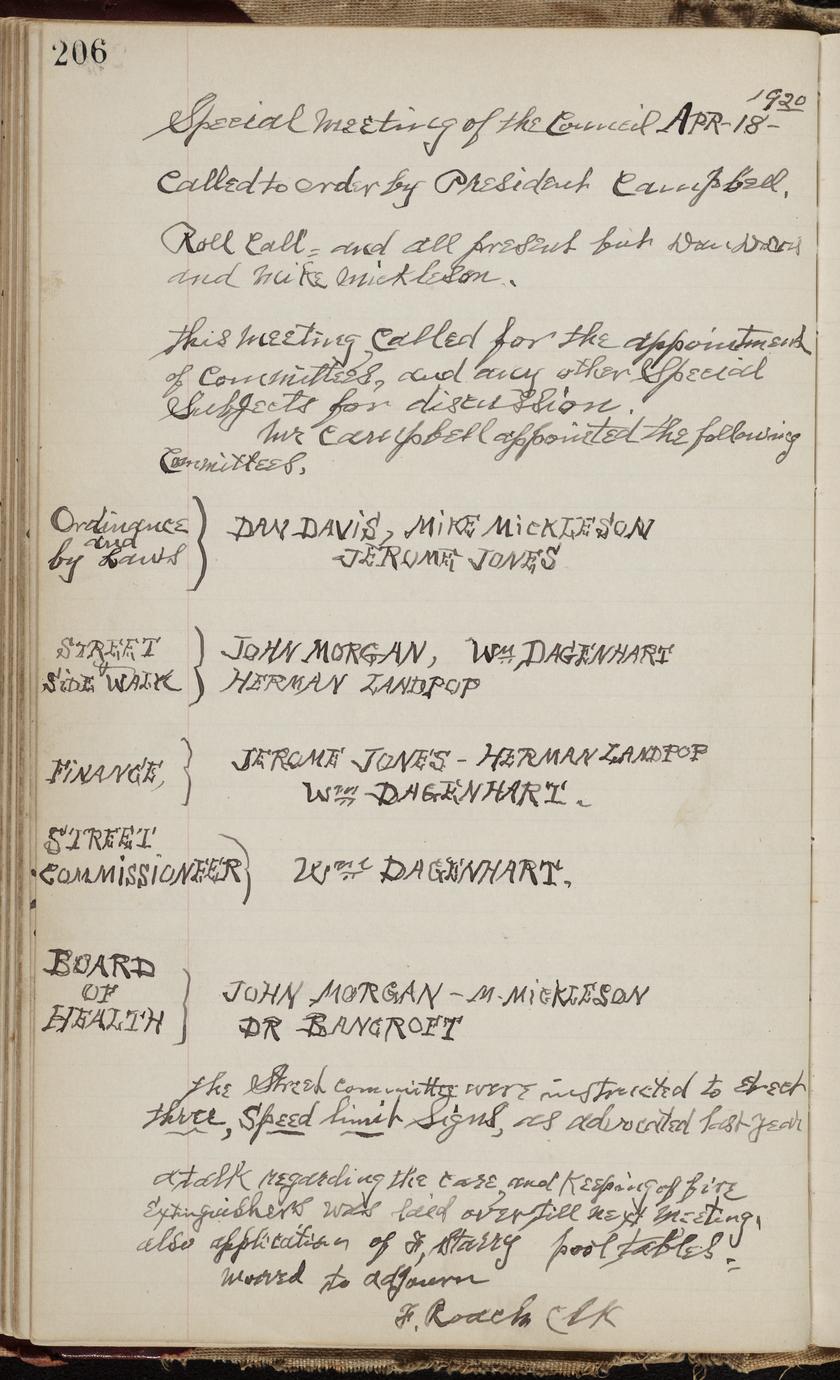 206
1920
Special meeting of the Council APR-18-
Called to order by President Campbell.
Roll Call = and all present but Dan Davis
and Mike Mickleson.
this meeting called for the appointment
of Committees, and any other Special
Subjects for discussion.
Mr Campbell appointed the following
Committees.
Ordinance
and
by Laws } DAN DAVIS, MIKE MICKLESON
JEROME JONES
STREET
&
SIDE WALK } JOHN MORGAN, Wm DAGENHART
HERMAN LANDPOP
FINANCE, } JEROME JONES - HERMAN LANDPOP
Wm DAGENHART.
STREET
COMMISSIONEER } Wm DAGENHART.
BOARD
OF
HEALTH } JOHN MORGAN - M. MICKLESON
DR BANCROFT
the Street committe were instructed to erect
three, Speed limit Signs, as advocated last year
a talk regarding the care, and Keeping of fire
Extinguishers was laid over till next meeting,
also application of F, Starry pool tables. =
moved to adjourn
F. Roach Clk